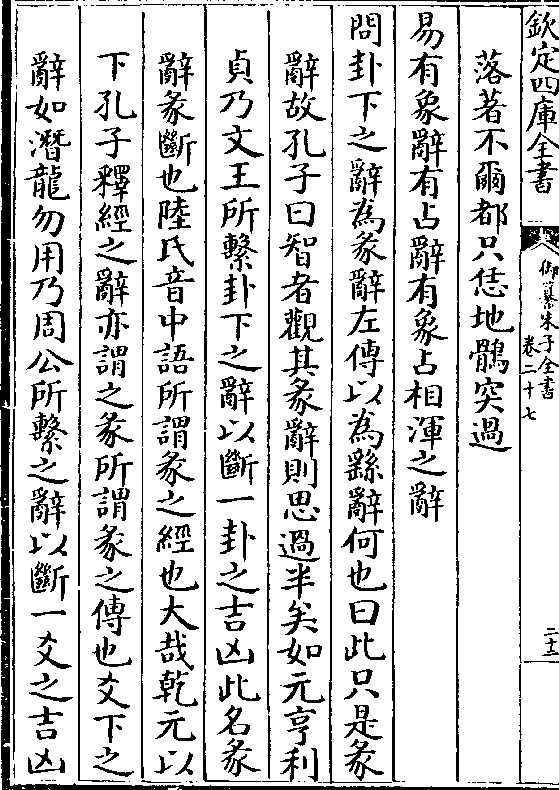 欽定四庫全書
御纂朱子全書
卷二十七
二十三
落著不爾都只恁地鶻突過
易有象辭有占辭有象占相渾之辭
問卦下之辭為彖辭左傳以為繇辭何也曰此只是彖
辭故孔子曰智者觀其彖辭則思過半矣如元亨利
貞乃文王所繫卦下之辭以斷一卦之吉凶此名彖
辭彖斷也陸氏音中語所謂彖之經也大哉乾元以
下孔子釋經之辭亦謂之彖所謂彖之傳也爻下之
辭如潛龍勿用乃周公所繫之辭以斷一爻之吉凶